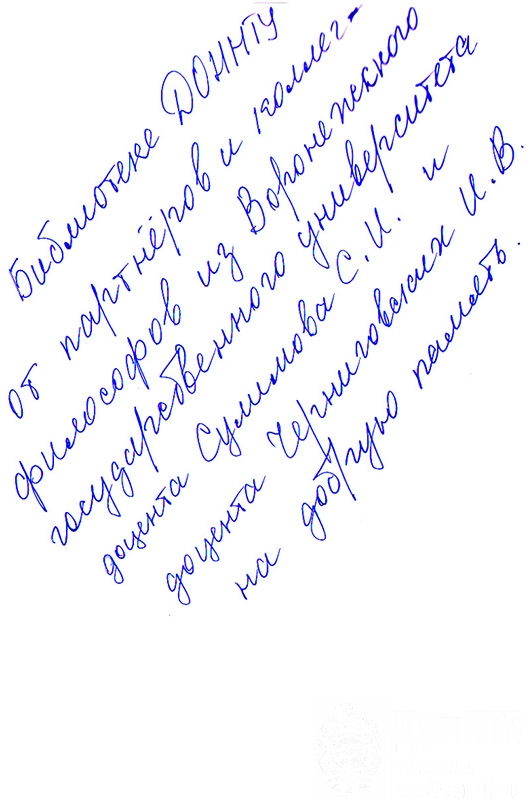 Библиотеке ДОННТУ
от партнёров и коллег-
философов из Воронежского
государственного университета
доцента Сулимова С. И. и
доцента Черниговских И. В.
на добрую память.